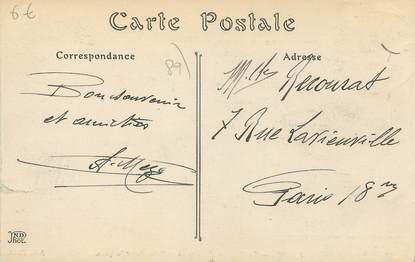 6€
Carte Postale
Correspondance
89
Adresse
Bon souvenir
et amitiés
Recourat
7 Rue Lavieuville
Paris 18
ND
PHOT.